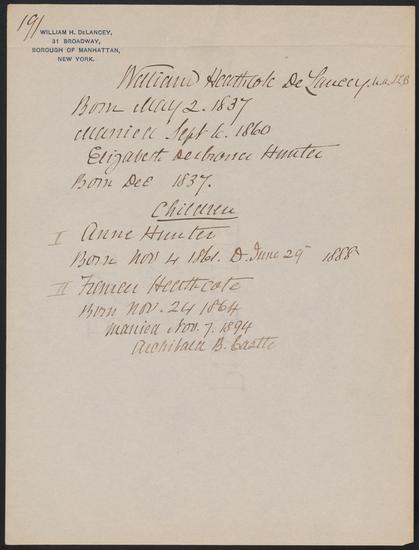 191
WILLIAM H. DELANCEY,
31 BROADWAY,
BOROUGH OF MANHATTAN,
NEW YORK.
William Heathcote De Lancey.
Born May 2. 1837
Married Sept 6. 1860
Elizabeth Hunter
Born Dec 1837.
Children
I Anne Hunter
Born Nov 4 1861. D. June 29th 1888
II Frances Heathcote
Born Nov. 24 1864
Married Nov. 7. 1894
Archibald B. Castle